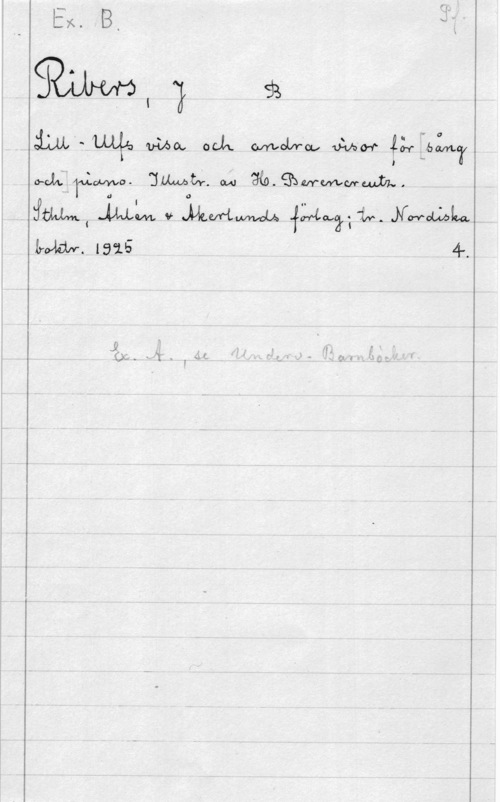 Ex. B. Pf.
Ribers, J B
Lill-Ulfs visa och andra visor för [sång
och] piano. Illustr. av H. Berencreutz.
Sthlm, Åhlén & Åkerlunds förlag; tr. Nordiska
boktr. 1925 4.
Ex. A., se Underv. - Barnböcker.